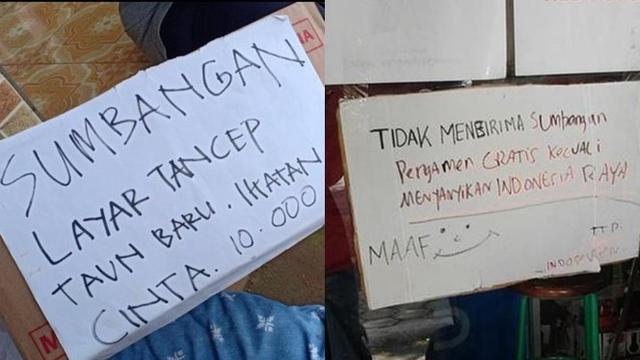 SUMBANGAN
LAYAR TANCEP
TAUN BARU. IKATAN
CINTA. 10.000
TIDAK MENERIMA SUMbangan
Pengamen GRATIS KECUALI
MENYANYIKAN INDONESIA RAYA
MAAF
TTD.